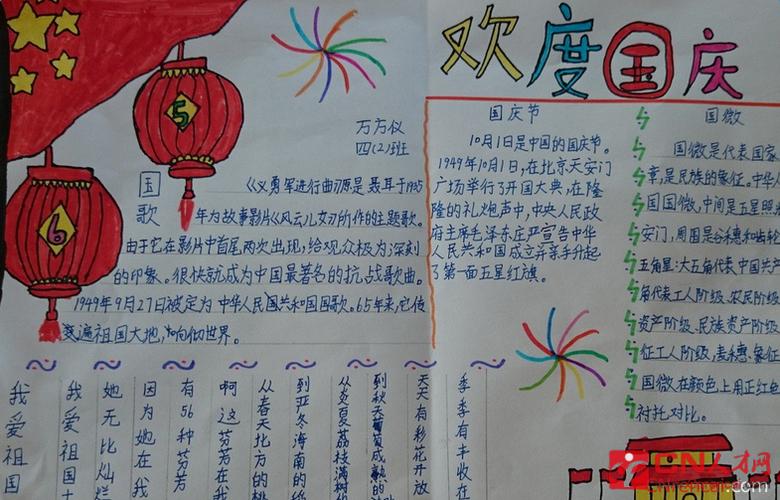 欢度国庆
5
6
万方仪
四(2)班
国歌
《义勇军进行曲》原是聂耳于1935
年为故事影片《风云儿女》所作的主题歌。
由于它在影片中首尾两次出现,给观众极为深刻
的印象。很快就成为中国最著名的抗战歌曲。
1949年9月27日被定为中华人民国共和国国歌。65年来,它传
遍祖国大地,响彻世界。
国庆节
10月1日是中国的国庆节。
1949年10月1日,在北京天安门
广场举行了开国大典,在隆
隆的礼炮声中,中央人民政
府主席毛泽东庄严宣告中华
人民共和国成立并亲手升起
了第一面五星红旗。
国徽
国徽是代表国家
章,是民族的象征。中华人
国国徽,中间是五星照
安门,周围是谷穗和齿轮
五角星:大五角代表中国共产
角代表工人阶级、农民阶级
资产阶级、民族资产阶级
征工人阶级,麦穗、象征
国徽在颜色上用正红
衬托对比。
季季有丰收在
天天有彩花开放
到秋天葡萄成熟的
从炎夏荔枝满树的
到亚冬海南的
从春天北方的桃
啊这芬芳在我
有56种芬芳
因为她在我
她无比灿烂
我爱祖国
我爱祖国
CN人才网